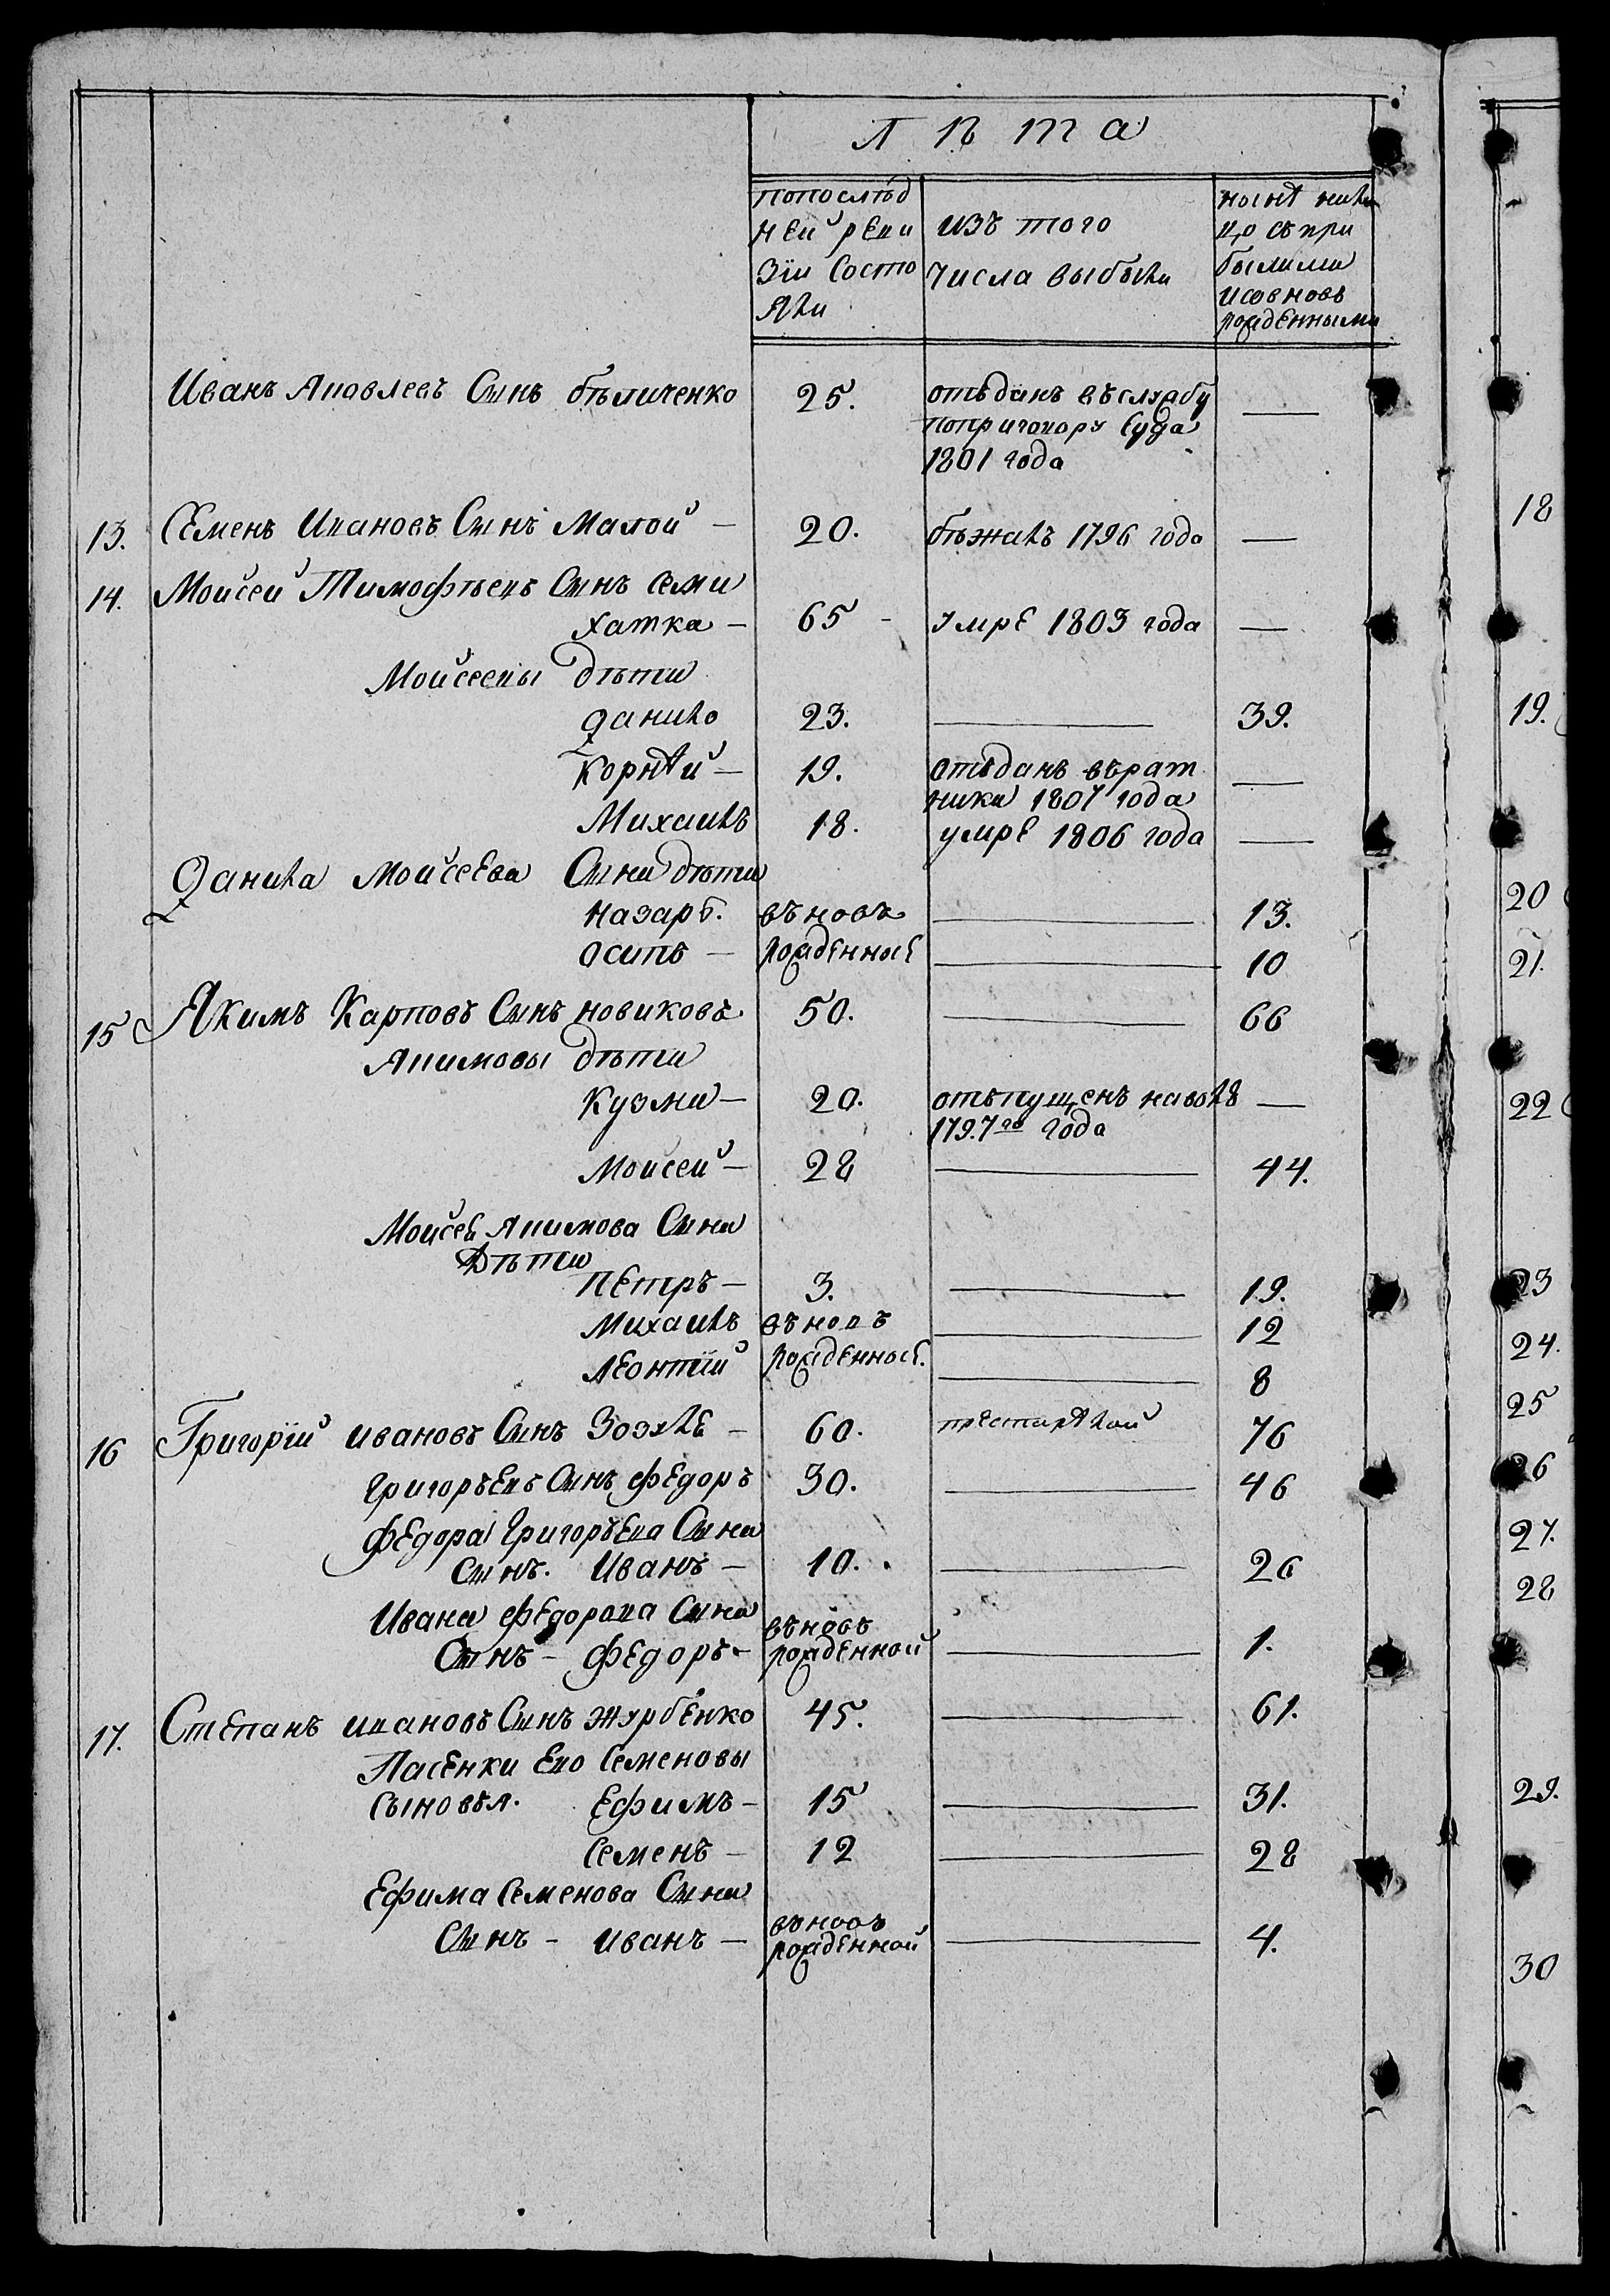 лѣта
попослѣд
ней реви
зіи Состо
яли
изъ того
числа выбыли
нынѣ нали
цо съ при
былыми
исовновь
рожденными
Иванъ Яковлевъ Сынъ бѣличенко 25. отъданъ въслужбу —
поприговору Суда
1801 года
13. Семенъ Ивановъ Сынъ Малой — 20. бѣжалъ 1796 года —
14. Моисей Тимофѣевъ Сынъ семи
хатка — 65 - умре 1803 года —
Моисеевы дѣти
данило 23. — 39.
Корнѣй — 19. отъданъ върат —
ники 1807 года
Михаилъ 18. умре 1806 года —
Данила Моисеева Сына дѣти
назаръ. въновь — 13.
осипъ — рожденные — 10
15 Якимъ Карповъ Сынъ новиковъ 50. — 66
Якимовы дѣти
Кузма — 20. отъпущенъ наволю —
1797го года
Моисей — 28 — 44.
Моисея Якимова Сына
Дѣти
Петръ — 3. — 19.
Михаилъ въновь — 12
Леонтій рожденные. — 8
16 Григорій ивановъ Сынъ Зозуле — 60. престарѣлой 76
Григорьевъ Сынъ федоръ 30. — 46
федора Григорьева Сына
Сынъ. Иванъ — 10. — 26
Ивана федорова Сына
Сынъ - федоръ - въновь рожденной — 1.
17. Степанъ ивановъ Сынъ журбенко 45. — 61.
Пасенки Ево Семеновы
Сыновья. Ефимъ — 15 — 31.
Семенъ — 12 — 28
Ефима Семенова Сына
Сынъ - иванъ — въновь рожденной — 4.
18
19.
20
21.
22
23
24.
25
26
27.
28
29.
30